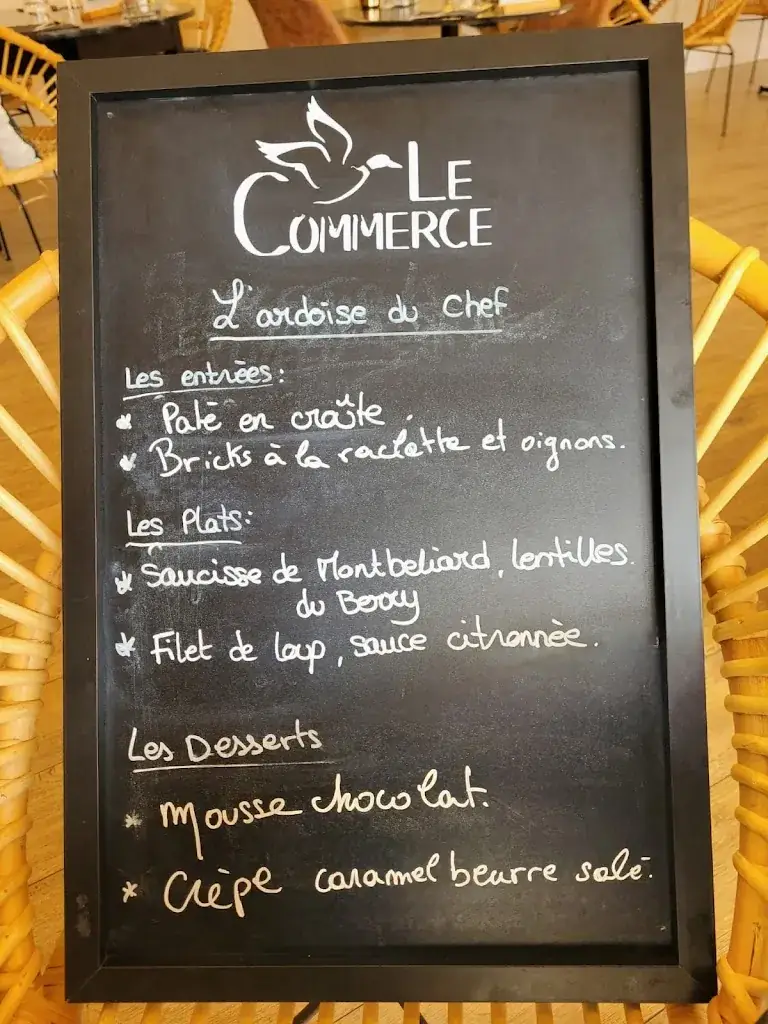 LE
COMMERCE
L'ardoise du Chef
Les entrèes:
* Patè en craûte.
* Bricks à la raclette et oignons.
Les Plats:
* Saucisse de Montbeliard, lentilles.
du Berry
* Filet de loup, sauce citronnèe.
Les Desserts
* Mousse chocolat.
* Crèpe caramel beurre salé.